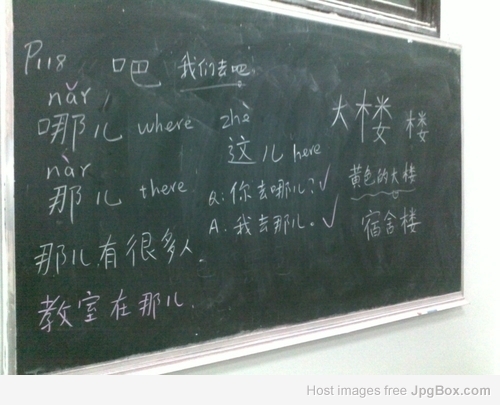 P118 吧 我们去吧。
nǎr
哪儿 where
zhè
这儿 here
nàr
那儿 there
Q: 你去哪儿? ✓
A. 我去那儿。✓
那儿有很多人.
教室在那儿.
大楼 楼
黄色的大楼
宿舍楼
Host images free JpgBox.com